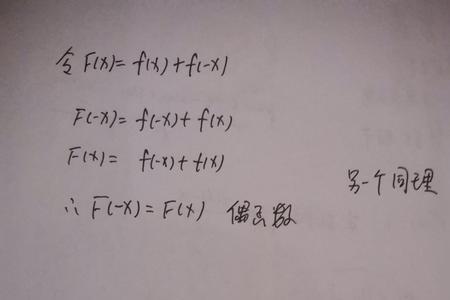 令 F(x)= f(x)+f(-x)
F(-x)= f(-x)+ f(x)
F(x)= f(-x)+f(x)
另一个同理
∴ F(-x)=F(x) 偶函数